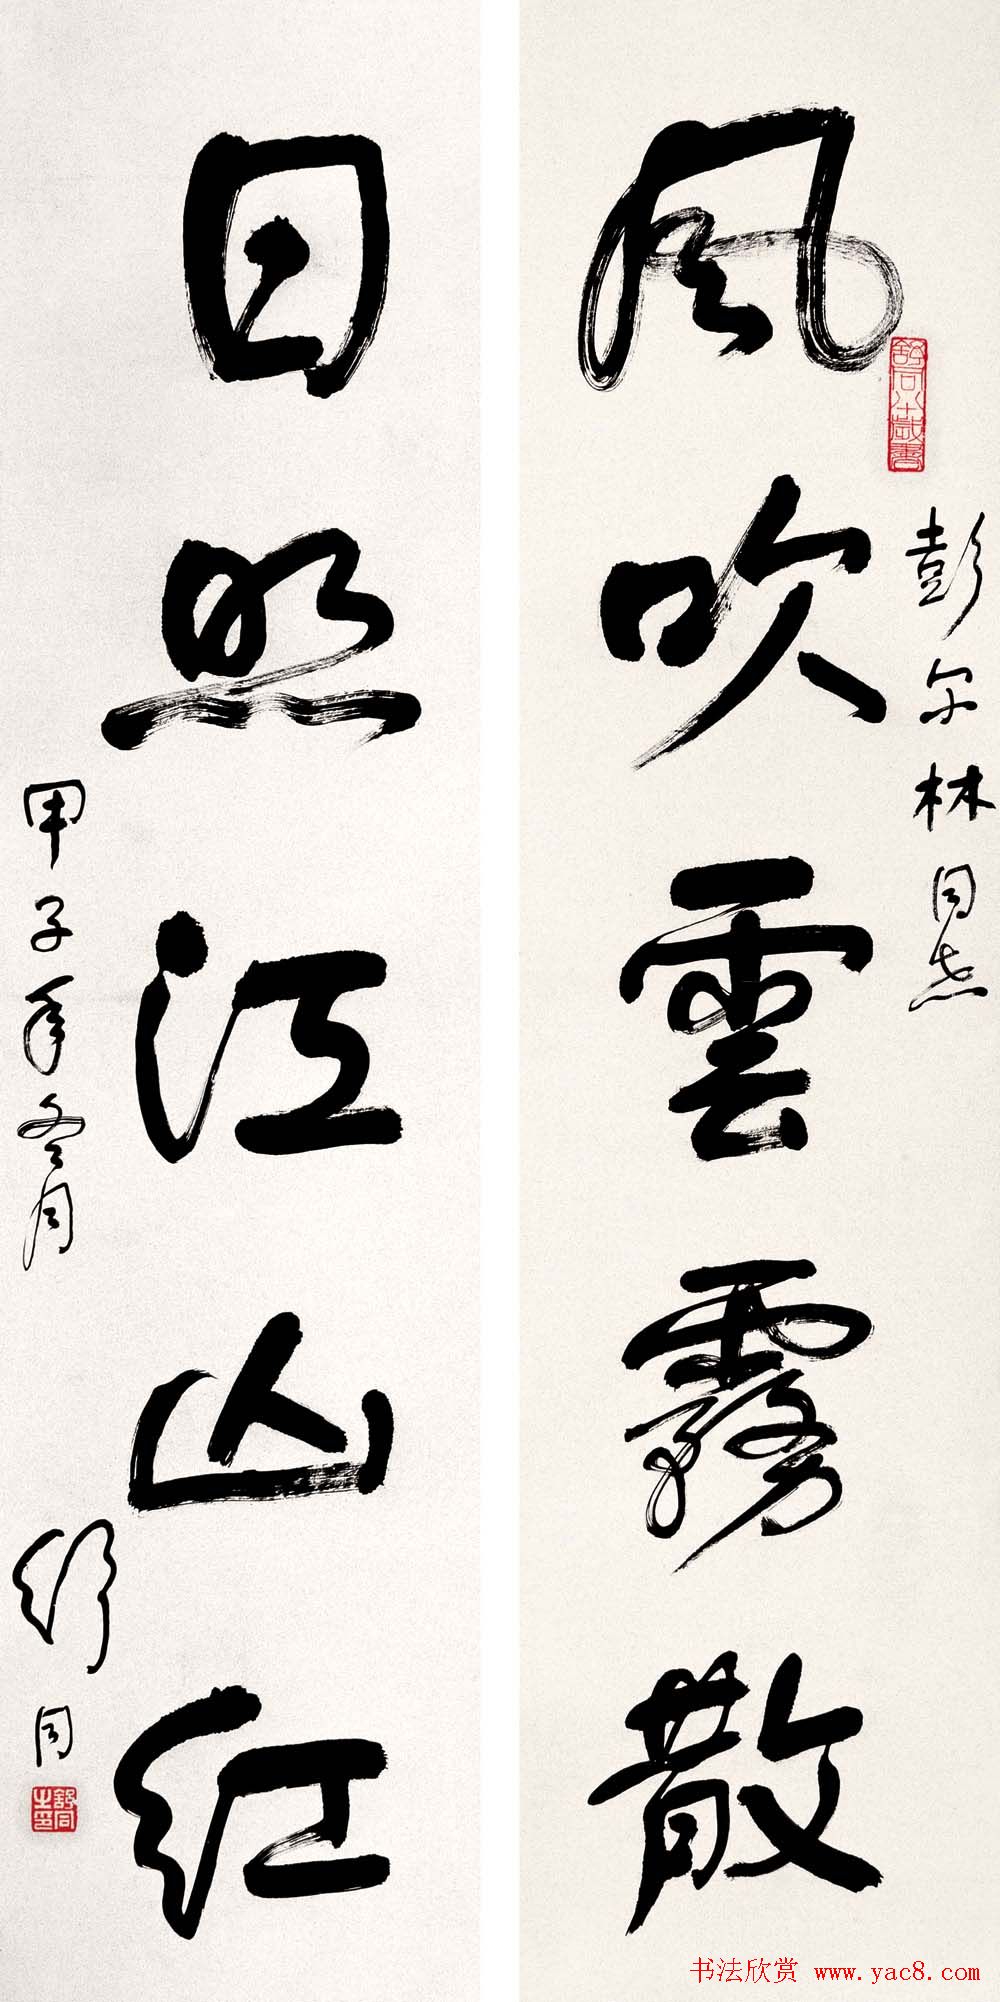 風吹雲霧散
彭尔林同志
日照江山红
甲子年冬月
舒同
舒同八十歲書
舒同之印
书法欣赏 www.yac8.com